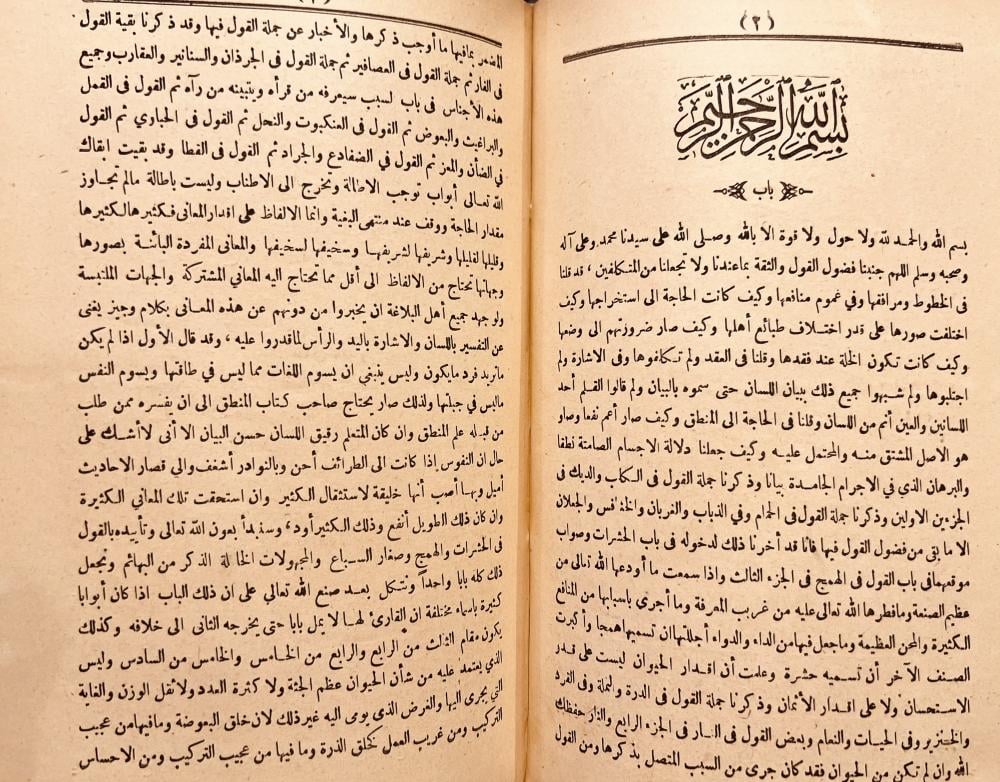 (٢)
بسم الله الرحمن الرحيم
باب
بسم الله والحمد لله ولا حول ولا قوة الا بالله وصلى الله على سيدنا محمد وعلى آله
وصحبه وسلم اللهم جنبنا فضول القول والثقة بماعندنا ولا تجعلنا من المتكلفين ، قد قلنا
فى الخطوط ومرافقها وفي عموم منافعها وكيف كانت الحاجة الى استخراجها وكيف
اختلفت صورها على قدر اختلاف طبائع أهلها وكيف صار ضرورتهم الى وضعها
وكيف كانت تكون الخلة عند فقدها وقلنا فى العقد ولم تكلفوها وفى الاشارة ولم
اجتلبوها ولم شبهوا جميع ذلك ببيان اللسان حتى سموه بالبيان ولم قالوا القلم أحد
اللسانين والعين أنم من اللسان وقلنا فى الحاجة الى المنطق وكيف صار أعم نفعا وصار
هو الاصل المشتق منه والمحتمل عليه وكيف جعلنا دلالة الاجسام الصامتة نطقا
والبرهان الذي في الاجرام الجامدة بيانا وذكرنا جملة القول فى الكلب والديك فى
الجزءين الاولين وذكرنا جملة القول فى الحمام وفي الذباب والغربان والخنافس والجعلان
الا ما بقى من فضول القول فيها فانا قد أخرنا ذلك لدخوله فى باب الحشرات وصواب
موقعهمافى باب القول فى الهمج فى الجزء الثالث واذا سمعت ما أودعها الله تعالى من
عظيم الصنعة ومافطرها الله تعالى عليه من غريب المعرفة وما أجرى باسبابها من المنافع
الكثيرة والمحن العظيمة وماجعل فيهامن الداء والدواء أجللتها ان تسميهاهمجا وأكبرت
الصنف الآخر أن تسميه حشرة وعلمت أن اقدار الحيوان ليست على قدر
الاستحسان ولا على اقدار الأثمان وذكرنا جملة القول فى الذرة والنملة وفى القرد
والخنزير وفى الحيات والنعام وبعض القول فى النار فى الجزء الرابع والنار حفظك
الله وان لم تكن من الحيوان فقد كان جرى من السبب المتصل بذكرها ومن القول
المضمر بمافيها ما أوجب ذكرها والأخبار عن جملة القول فيها وقد ذكرنا بقية القول
فى النار ثم جملة القول فى العصافير ثم جملة القول فى الجرذان والسنانير والعقارب وجميع
هذه الأجناس فى باب لسبب سيعرفه من قرأه ويتبينه من رآه ثم القول فى القمل
والبراغيث والبعوض ثم القول فى العنكبوت والنحل ثم القول فى الحبارى ثم القول
في الضأن والمعز ثم القول في الضفادع والجراد ثم القول فى القطا وقد بقيت ابقاك
الله تعالى أبواب توجب الاطالة وتخرج الى الاطناب وليست باطالة مالم تجاوز
مقدار الحاجة ووقف عند منتهى البغية وانما الالفاظ على اقدار المعانى فكثيرهالكثيرها
وقليلها لقليلها وشريفها لشريفها وسخيفها لسخيفها والمعاني المفردة البائنة بصورها
وجهاتها تحتاج من الالفاظ الى أقل مما تحتاج اليه المعاني المشتركة والجهات الملتبسة
ولو جهد جميع أهل البلاغة ان يخبروا من دونهم عن هذه المعانى بكلام وجيز يغنى
عن التفسير باللسان والاشارة باليد والرأس لماقدروا عليه ، وقد قال الأول اذا لم يكن
ماتريد فرد مايكون وليس ينبغي ان يسوم اللغات مما ليس في طاقتها ويسوم النفس
ماليس في جبلتها ولذلك صار يحتاج صاحب كتاب المنطق الى ان يفسره ممن طلب
من قبله علم المنطق وان كان المتعلم رقيق اللسان حسن البيان الا أنى لاأشك على
حال ان النفوس إذا كانت الى الطرائف أحن وبالنوادر أشغف والي قصار الاحاديث
أميل وبها أصب أنها خليقة لاستثقال الكثير وان استحقت تلك المعاني الكثيرة
وان كان ذلك الطويل أنفع وذلك الكثير أود ، وسنبدأ بعون الله تعالى وتأييده بالقول
فى الحشرات والهمج وصغار السباع والمجهولات الخاملة الذكر من البهائم ونجعل
ذلك كله بابا واحداً ونتكل بعد صنع الله تعالي على ان ذلك الباب اذا كان أبوابا
كثيرة باسماء مختلفة ان القارئ لها لا يمل بابا حتى يخرجه الثانى الى خلافه وكذلك
يكون مقام الثالث من الرابع والرابع من الخامس والخامس من السادس وليس
الذي يعتمد عليه من شأن الحيوان عظم الجثة ولا كثرة العدد ولا ثقل الوزن والغاية
التي يجرى اليها والغرض الذى يومى اليه غيرذلك لان خلق البعوضة ومافيهامن عجيب
التركيب ومن غريب العمل كخلق الذرة وما فيها من عجيب التركيب ومن الاحساس